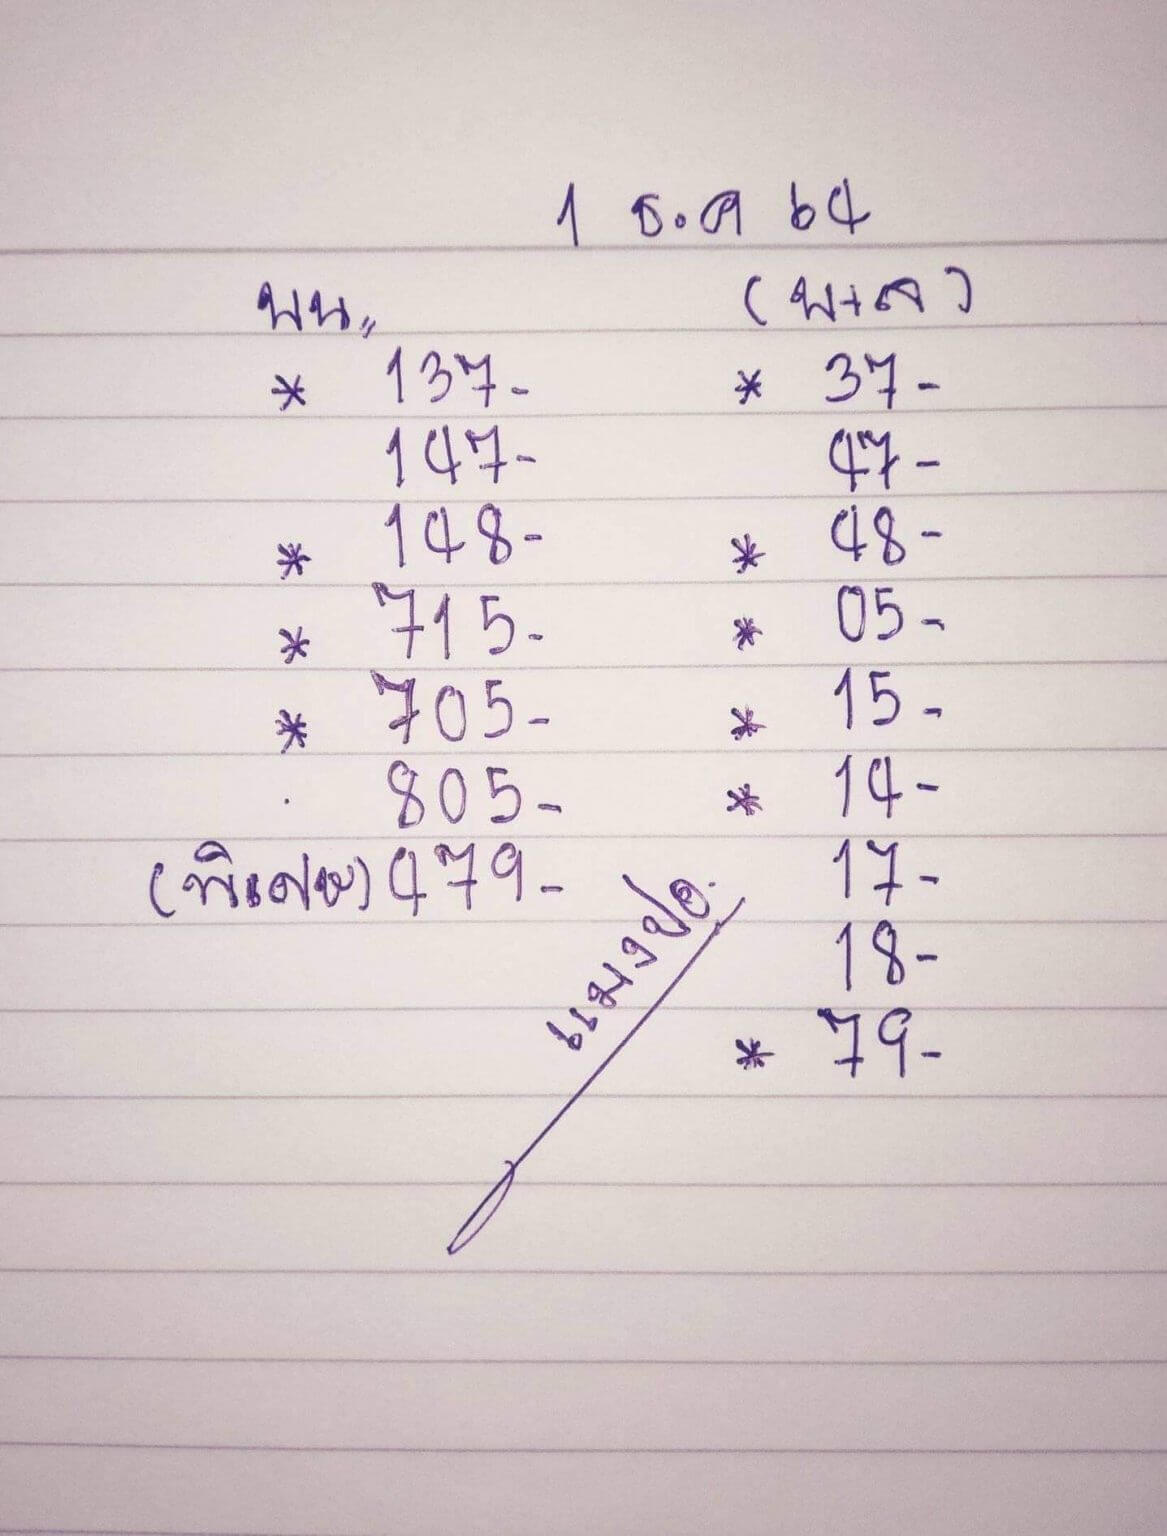 1 ธ.ค 64
บน,, (บ+ล)
* 137- * 37-
147- 47-
* 148- * 48-
* 715- * 05-
* 705- * 15-
805- * 14-
(พิเศษ) 479- 17-
18-
* 79-
แมงปอ.